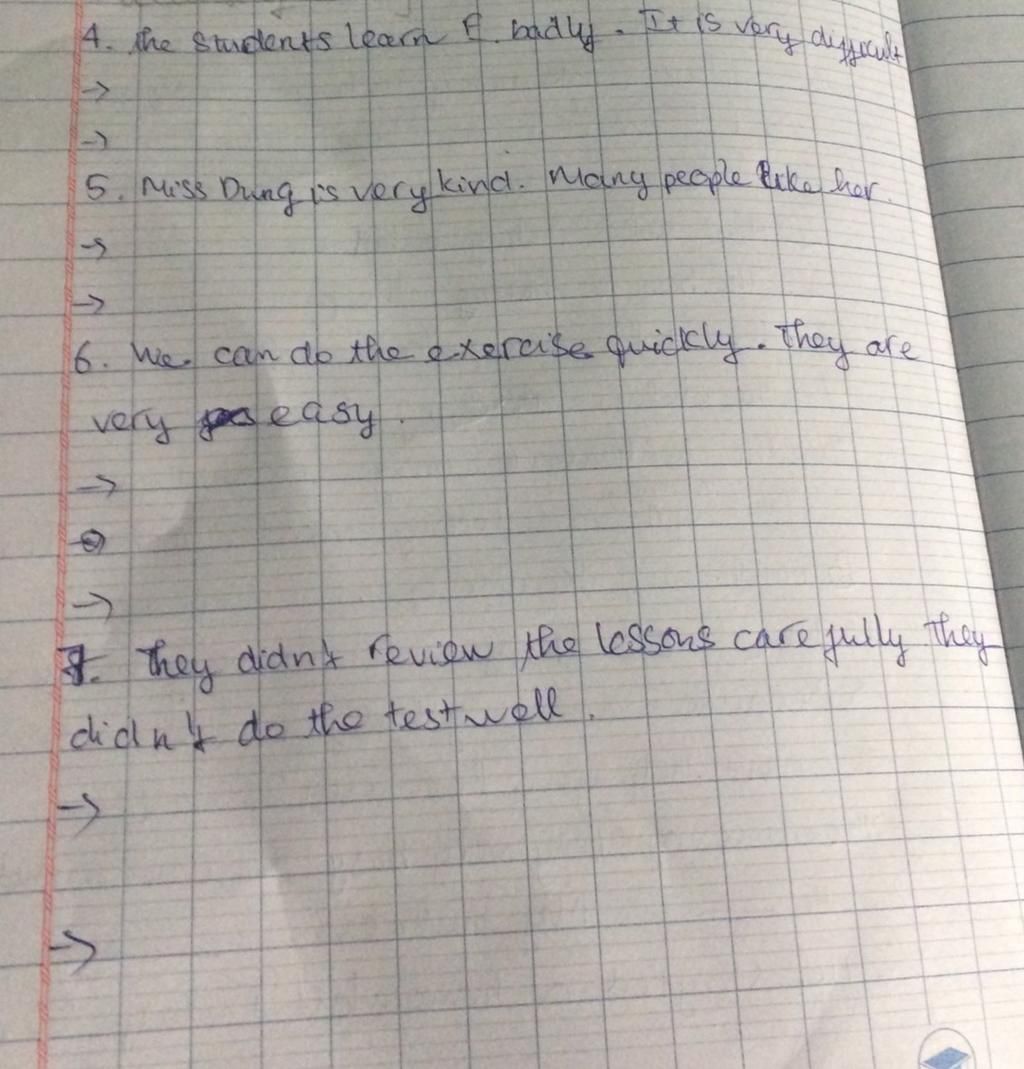 4. The students learn E. badly. It is very difficult
→
→
5. Miss Dung is very kind. Many people like her.
→
→
6. We can do the exercise quickly. They are
very easy.
→
→
→
7. They didn't review the lessons carefully they
didn't do the test well.
→
→